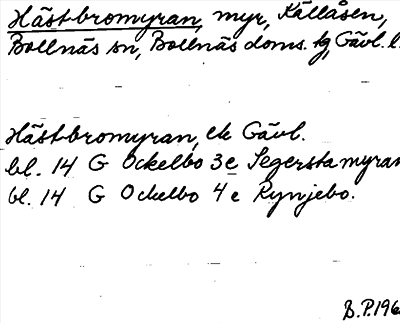 Hästbromyran, myr, Källåsen,
Bollnäs sn, Bollnäs doms. tg, Gävl. l.
Hästbromyran, ek Gävl.
bl. 14 G Ockelbo 3e Segerstamyran
bl. 14 G Ockelbo 4e Rynjebo.
B.P.196